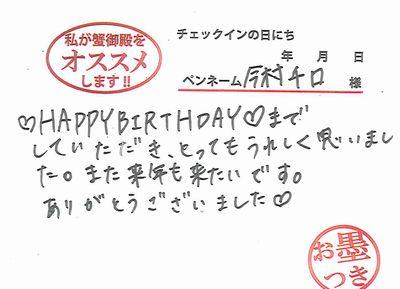 私が蟹御殿を
オススメ
します!!
チェックインの日にち
年 月 日
ペンネーム 今村チロ 様
♡HAPPY BIRTHDAY♡まで
していただき、とってもうれしく思いまし
た。また来年も来たいです。
ありがとうございました♡
お墨
つき